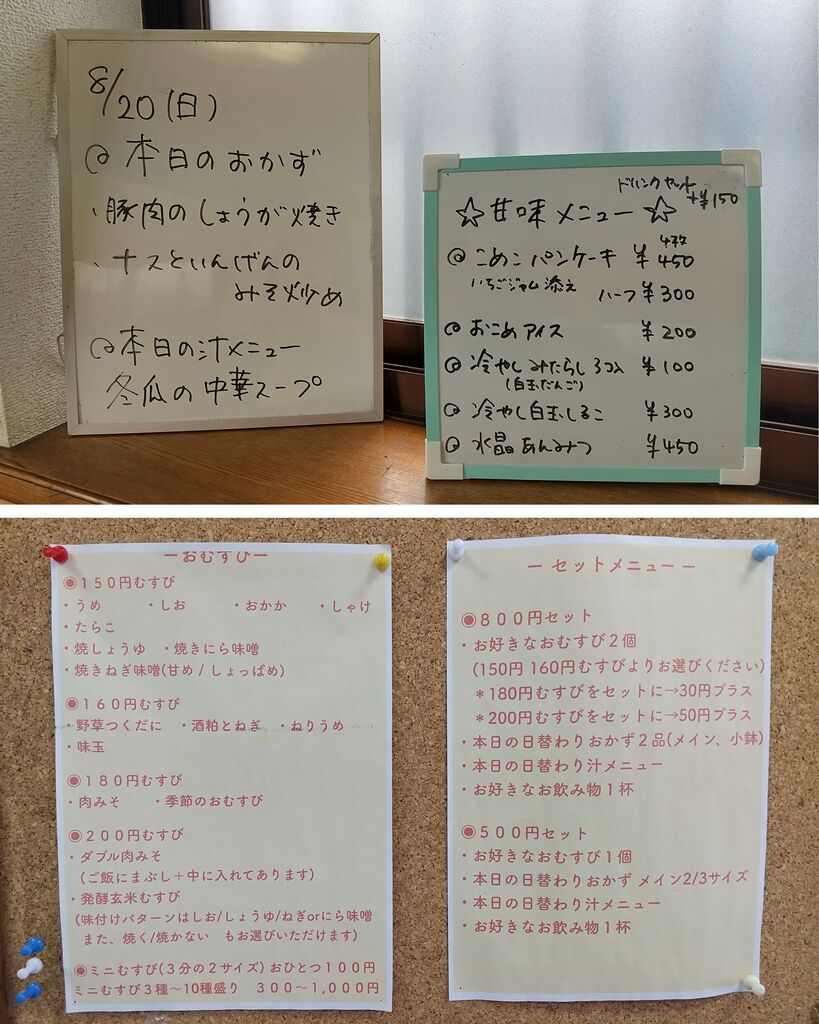 8/20(日)
@ 本日のおかず
・豚肉のしょうが焼き
・ナスといんげんの
みそ炒め
@ 本日の汁メニュー
冬瓜の中華スープ
ドリンクセット
+¥150
☆甘味メニュー☆
@ こめこパンケーキ 4枚 ¥450
いちごジャム添え ハーフ ¥300
@ おこめアイス ¥200
@ 冷やしみたらし 3コ入 ¥100
(白玉だんご)
@ 冷やし白玉しるこ ¥300
@ 水晶あんみつ ¥450
ーおむすびー
◉150円むすび
・うめ ・しお ・おかか ・しゃけ
・たらこ
・焼しょうゆ ・焼きにら味噌
・焼きねぎ味噌(甘め / しょっぱめ)
◉160円むすび
・野草つくだに ・酒粕とねぎ ・ねりうめ
・味玉
◉180円むすび
・肉みそ ・季節のおむすび
◉200円むすび
・ダブル肉みそ
(ご飯にまぶし+中に入れてあります)
・発酵玄米むすび
(味付けパターンはしお/しょうゆ/ねぎorにら味噌
また、焼く/焼かない もお選びいただけます)
◉ミニむすび(3分の2サイズ) おひとつ100円
ミニむすび3種〜10種盛り 300〜1,000円
ー セットメニュー ー
◉800円セット
・お好きなおむすび2個
(150円 160円むすびよりお選びください)
*180円むすびをセットに→30円プラス
*200円むすびをセットに→50円プラス
・本日の日替わりおかず2品(メイン、小鉢)
・本日の日替わり汁メニュー
・お好きなお飲み物1杯
◉500円セット
・お好きなおむすび1個
・本日の日替わりおかず メイン2/3サイズ
・本日の日替わり汁メニュー
・お好きなお飲み物1杯